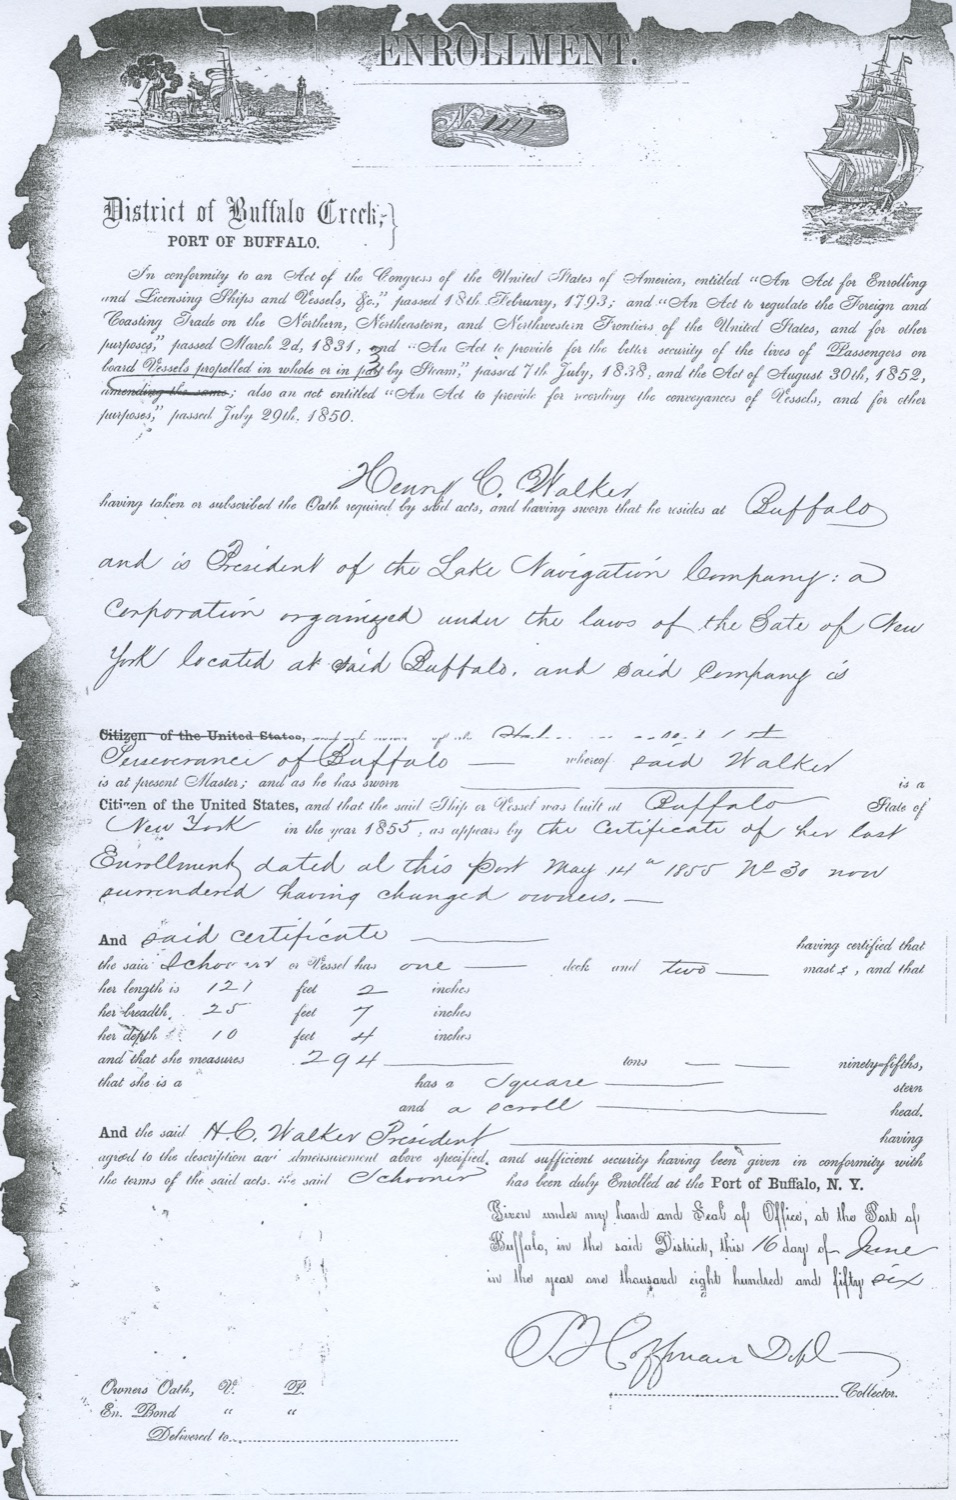 ENROLLMENT.
141
District of Buffalo Creek,
PORT OF BUFFALO.
In conformity to an Act of the Congress of the United States of America, entitled "An Act for Enrolling
and Licensing Ships and Vessels, &c," passed 18th February, 1793; and "An Act to regulate the Foreign and
Coasting Trade on the Northern, Northeastern, and Northwestern Frontiers of the United States, and for other
purposes," passed March 2d, 1831, and "An Act to provide for the better security of the lives of Passengers on
board Vessels propelled in whole or in part by Steam," passed 7th July, 1838, and the Act of August 30th, 1852,
amending the same; also an act entitled "An Act to provide for recording the conveyances of Vessels, and for other
purposes," passed July 29th, 1850.
Henry C. Walker
having taken or subscribed the Oath required by said acts, and having sworn that he resides at Buffalo
and is President of the Lake Navigation Company: a
Corporation organized under the laws of the Sate of New
York located at said Buffalo, and said Company is
Citizen of the United States,
Perseverance of Buffalo — whereof said Walker
is at present Master; and as he has sworn is a
Citizen of the United States, and that the said Ship or Vessel was built at Buffalo State of
New York in the year 1855, as appears by the Certificate of her last
Enrollment dated at this Port May 14th 1855 No 30 now
surrendered having changed owners. —
And said certificate having certified that
the said Schooner or Vessel has one deck and two masts, and that
her length is 121 feet 2 inches
her breadth, 25 feet 7 inches
her depth 10 feet 4 inches
and that she measures 294 tons ninety-fifths,
that she is a has a Square stern
and a scroll head.
And the said H.C. Walker President having
agreed to the description and admeasurement above specified, and sufficient security having been given in conformity with
the terms of the said acts. the said Schooner has been duly Enrolled at the Port of Buffalo, N. Y.
Given under my hand and Seal of Office, at the Port of
Buffalo, in the said District, this 16 day of June
in the year one thousand eight hundred and fifty six
Hoffman
Collector.
Owners Oath, V. P.
En. Bond " "
Delivered to